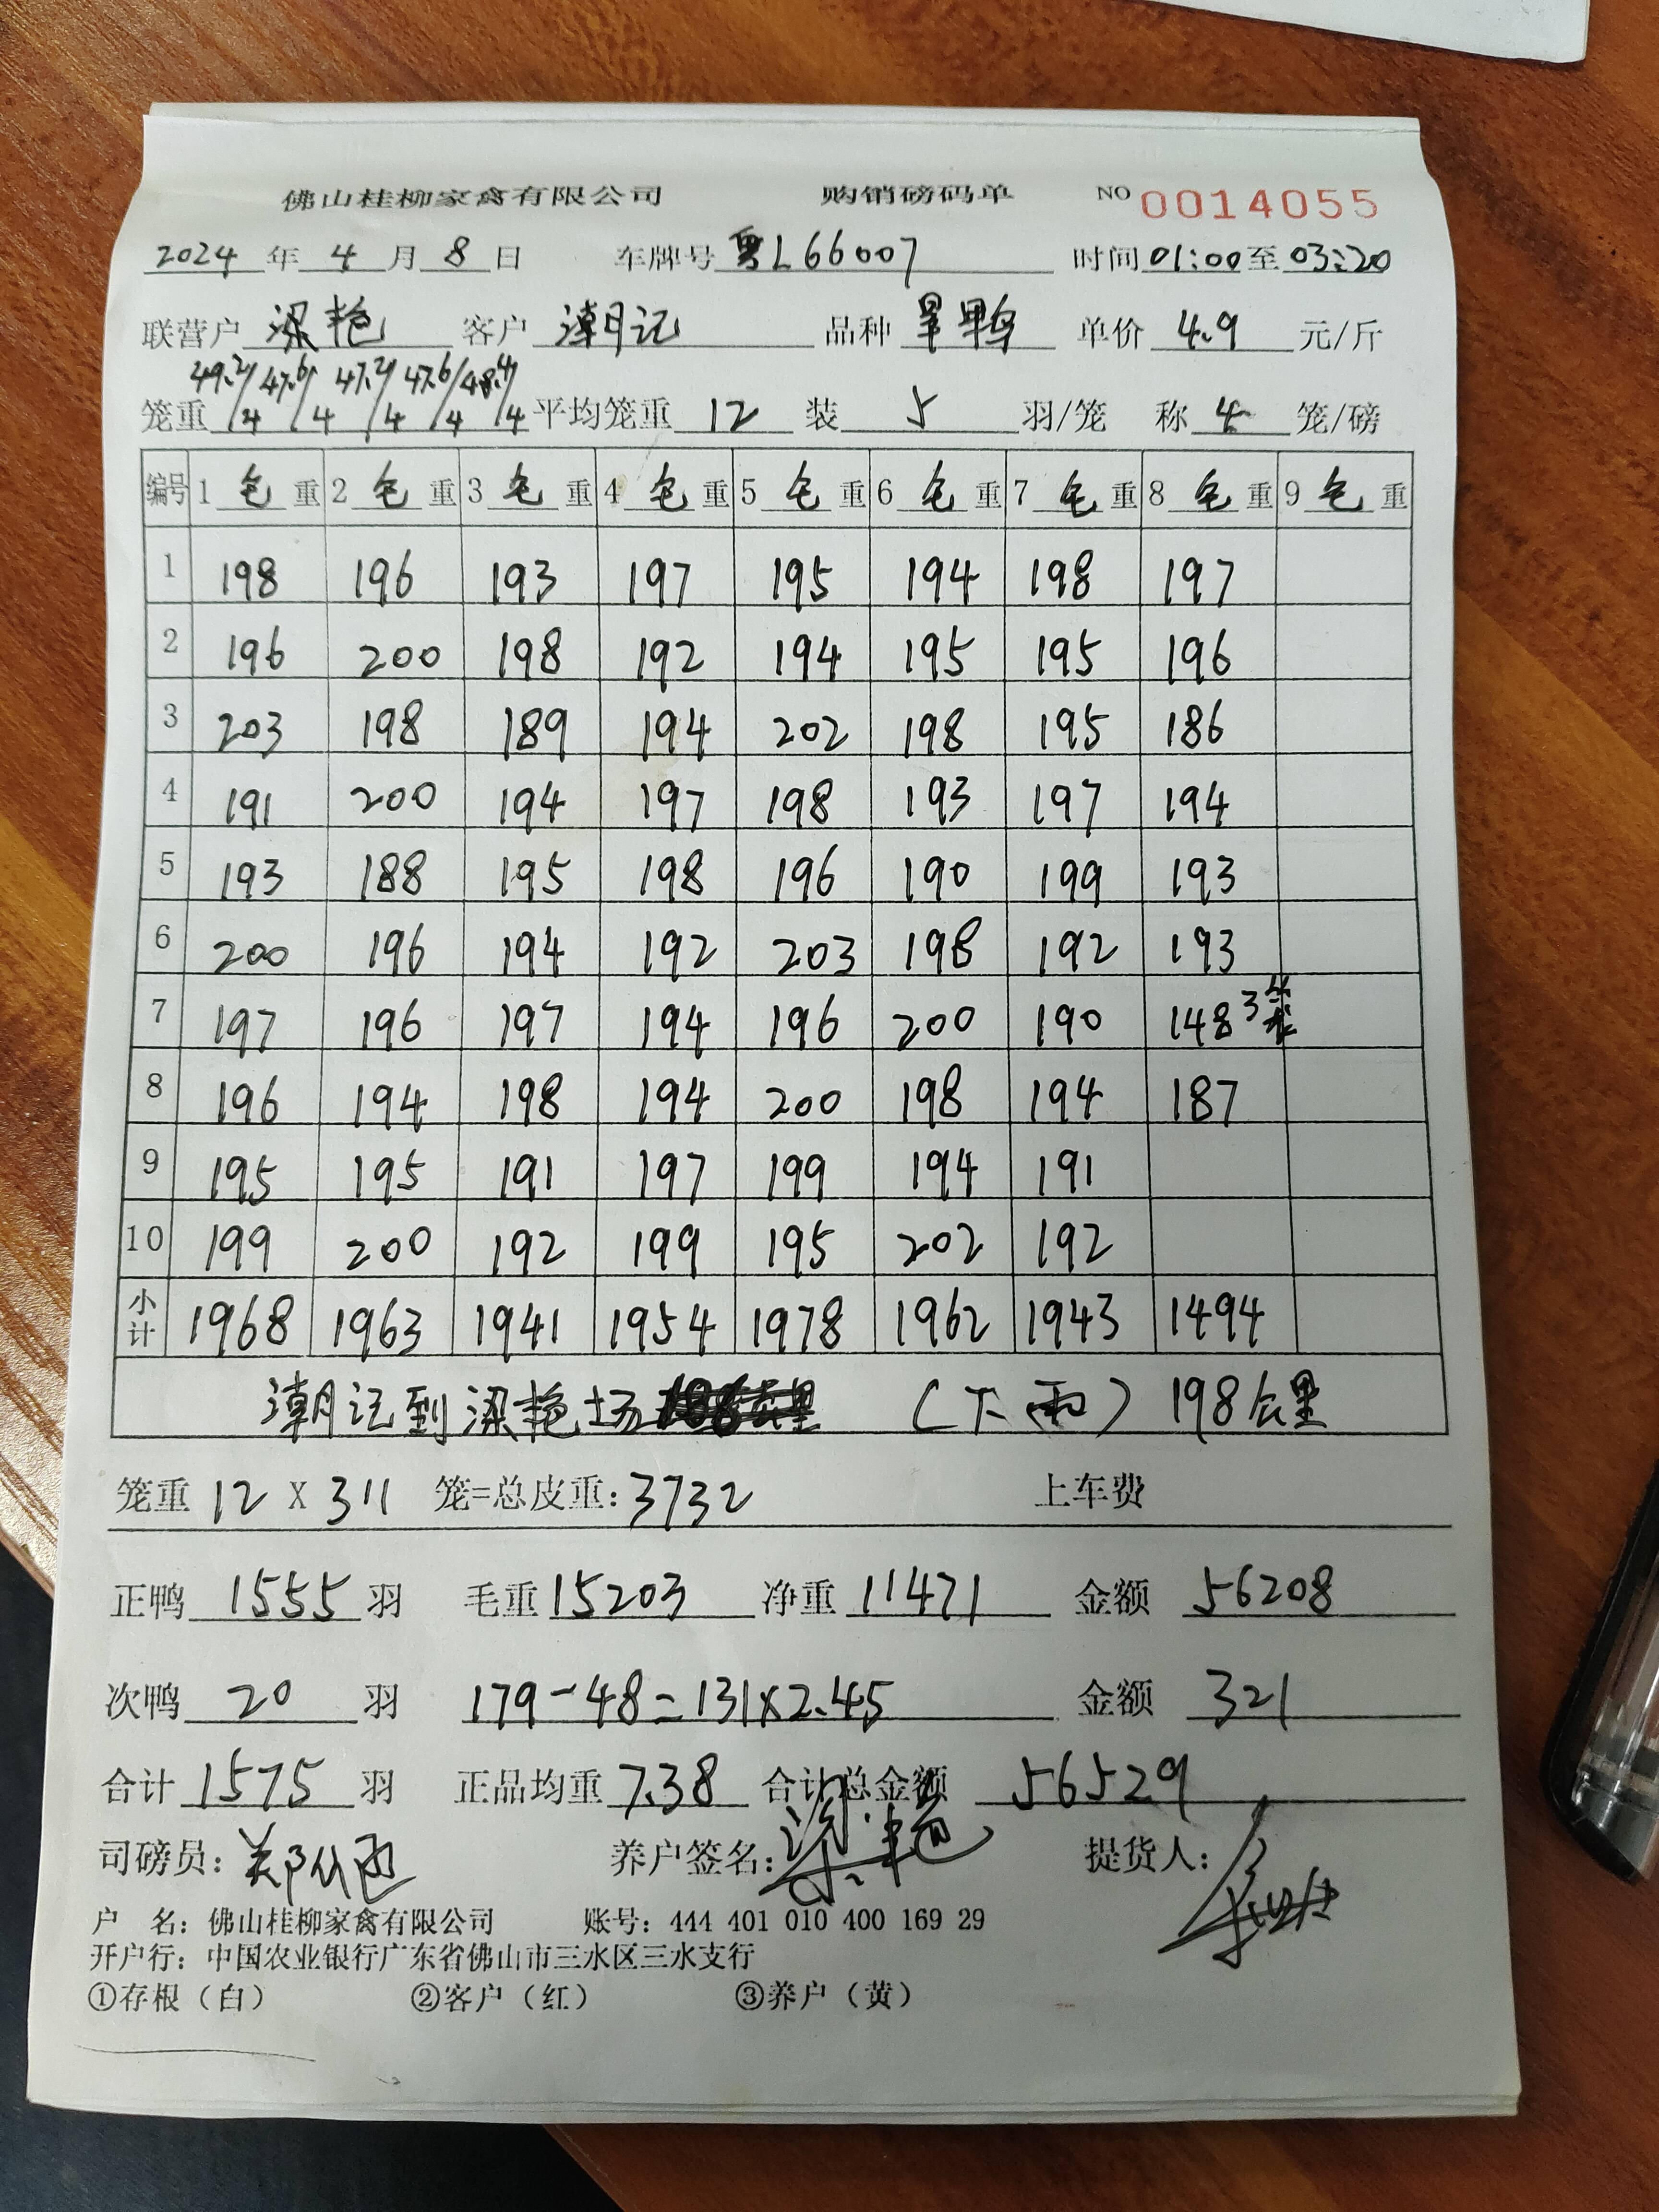 佛山桂柳家禽有限公司 购销磅码单 NO 0014055
2024 年 4 月 8 日 车牌号 粤L66007 时间 01:00 至 03:20
联营户 梁艳 客户 潮记 品种 旱鸭 单价 4.9 元/斤
笼重 49.2/4 47.6/4 47.2/4 47.6/4 48.4/4 平均笼重 12 装 5 羽/笼 称 4 笼/磅
编号 1 毛 重 2 毛 重 3 毛 重 4 毛 重 5 毛 重 6 毛 重 7 毛 重 8 毛 重 9 毛 重
1 198 196 193 197 195 194 198 197
2 196 200 198 192 194 195 195 196
3 203 198 189 194 202 198 195 186
4 191 200 194 197 198 193 197 194
5 193 188 195 198 196 190 199 193
6 200 196 194 192 203 198 192 193
7 197 196 197 194 196 200 190 148 3笼
8 196 194 198 194 200 198 194 187
9 195 195 191 197 199 194 191
10 199 200 192 199 195 202 192
小计 1968 1963 1941 1954 1978 1962 1943 1494
潮记到梁艳场 (下雨) 198公里
笼重 12 X 311 笼=总皮重: 3732 上车费
正鸭 1555 羽 毛重 15203 净重 11471 金额 56208
次鸭 20 羽 179-48=131x2.45 金额 321
合计 1575 羽 正品均重 7.38 合计总金额 56529
司磅员: 养户签名: 梁艳 提货人:
户 名: 佛山桂柳家禽有限公司 账号: 444 401 010 400 169 29
开户行: 中国农业银行广东省佛山市三水区三水支行
①存根（白） ②客户（红） ③养户（黄）